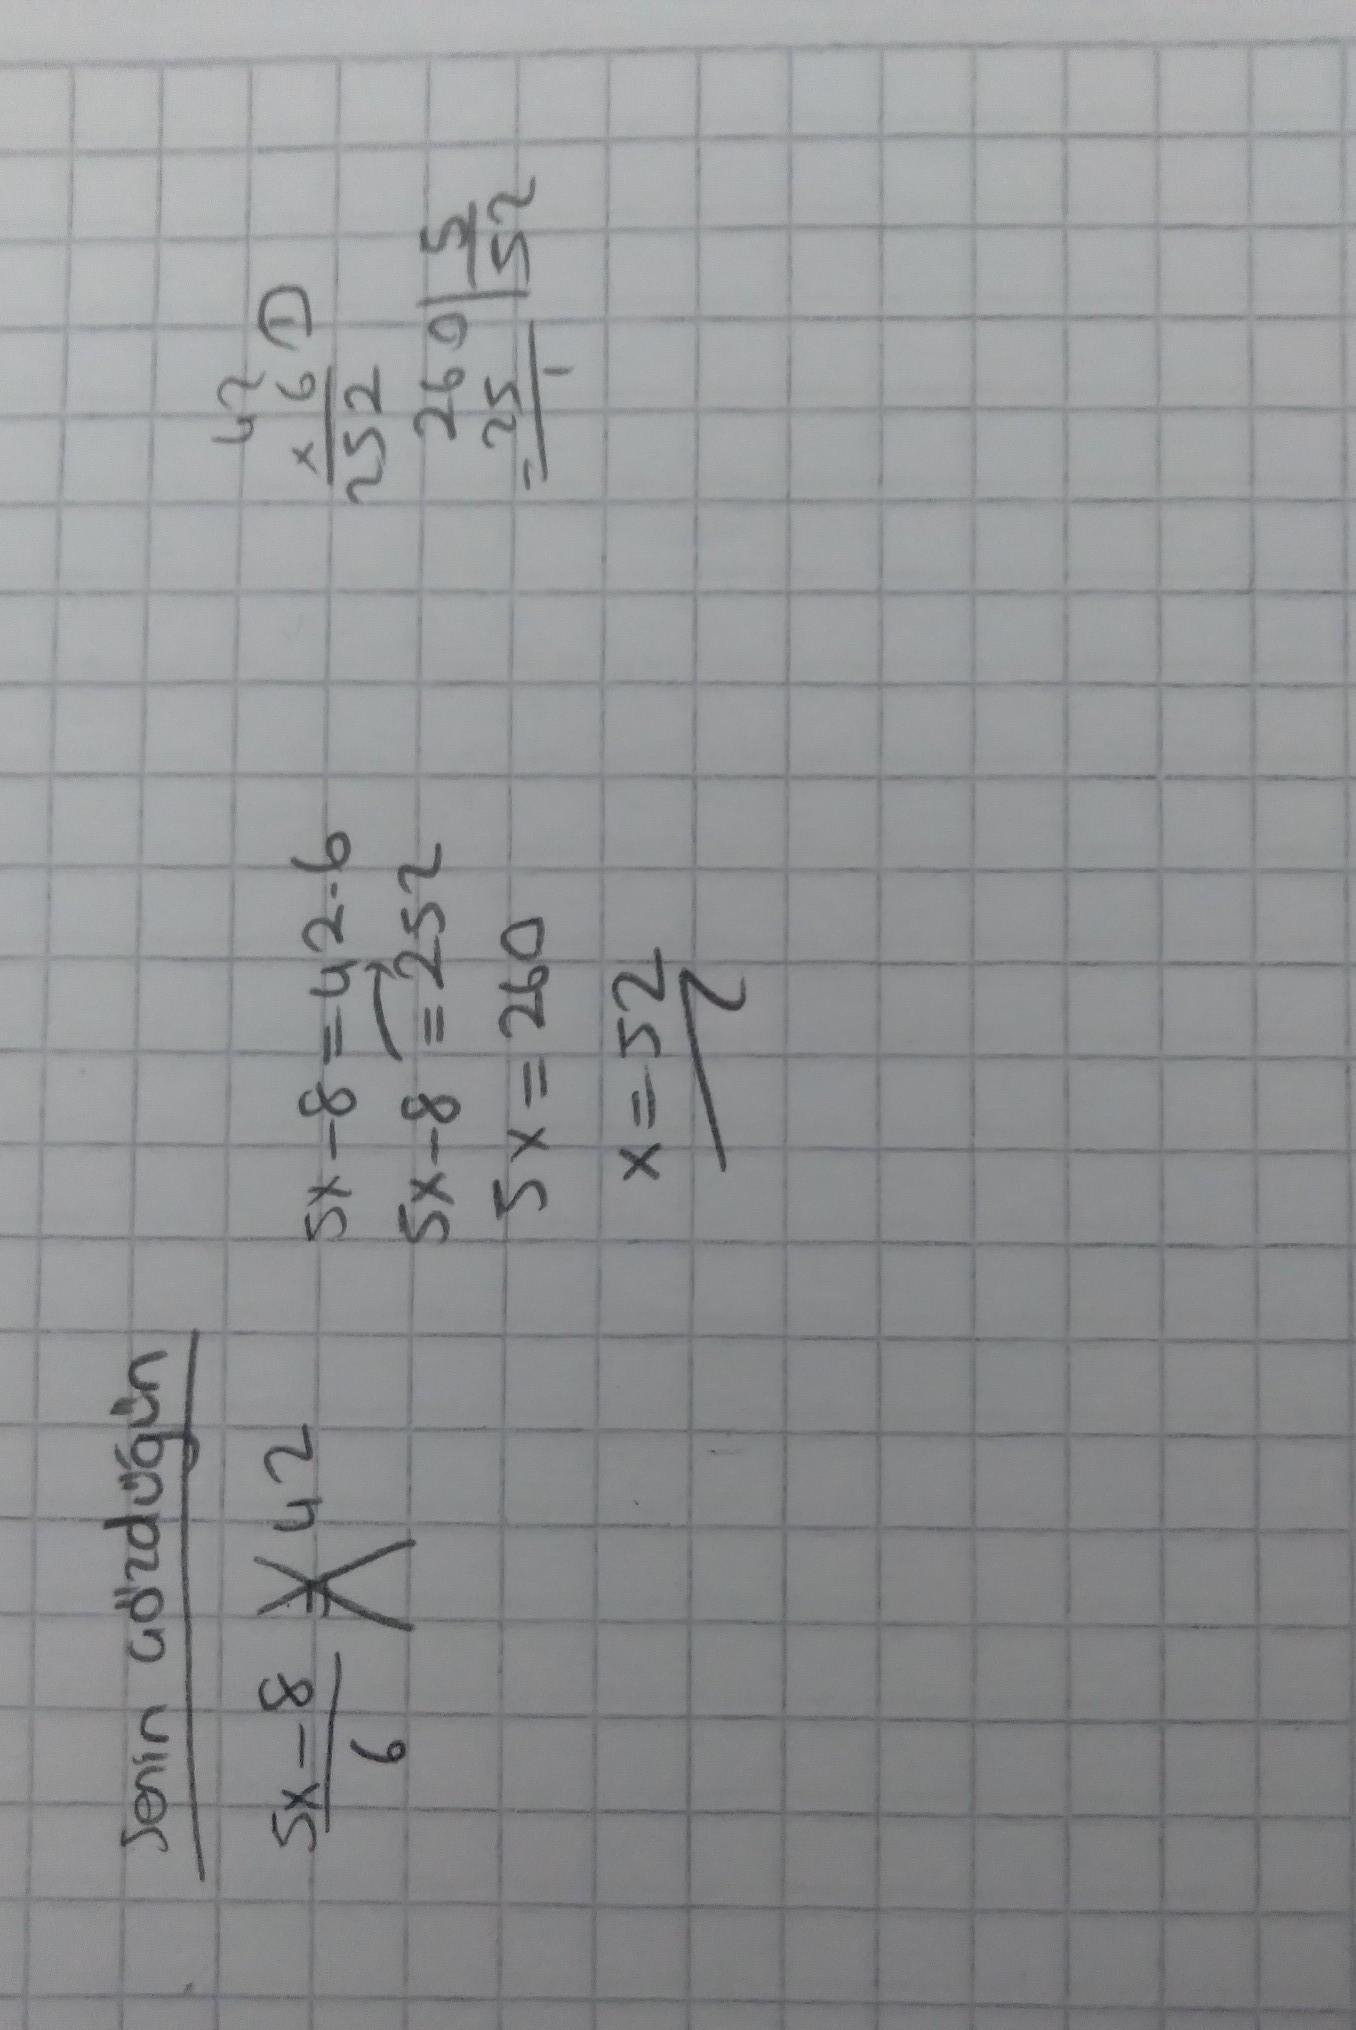 Senin çözdüğün
5x-8 = 42
6
5x-8=42.6
5x-8=252
5x=260
x=52
42
x 6 ①
252
260 | 5
-25 | 52
1